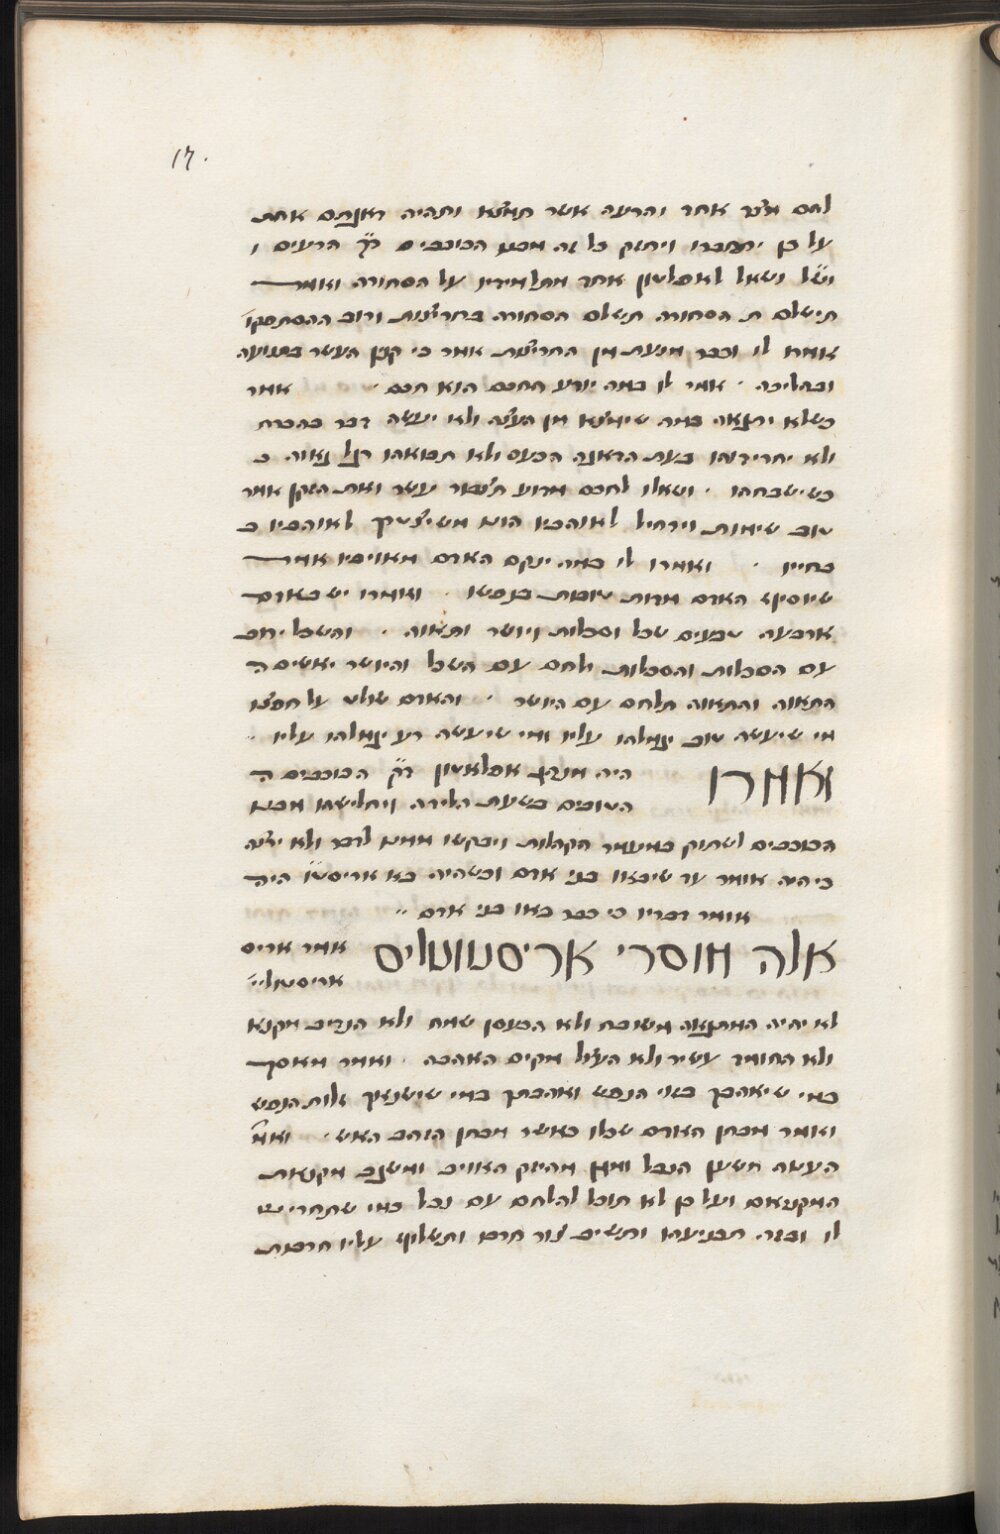 17.
לחם מצד אחד והרעה אשר תמצא ותהיה דאגתם אחת
על כן יתחברו ויחזק כל זה מבט הכוכבים ר״ל הרעים ו
וש״ל ושאל לאפלטון אחד מתלמידיו על הסחורה ואמר
תישלם ת הסחורה תשלם הסחורה בחריצות ורוב ההסתפקו׳
אמרו לו וכבר מנעת מן החריצות אמר כי קנין העשר בתנועה
ובהליכה · אמר לו במה יודע החכם הוא חכם · אמר
כשלא יתגאה במה שימצא מן העצה ולא יעשה דבר בהכרח
ולא יחרידהו בעת הדאגה הכעס ולא תבואהו רגל גאוה כ
כשישבחהו · ושאלו לחכם מדוע תצבור עשר ואת הזקן אמר
טוב שימות ויניח לאויביו משיצטרך לאוהביו ב
בחייו · ואמרו לו במה ינקם האדם מאויביו אמר
שיוסיף האדם מדות טובות בנפשו · ואמרו יש באדם
ארבעה טבעים שכל וסכלות ויושר ותאוה · והשכל ירוב
עם הסכלות והסכלות ילחם עם השכל והיושר יאשים ה
התאוה והתאוה תלחם עם היושר · והאדם שולט על חפצו
מי שיעשה טוב יגמלהו עליו ומי שיעשה רע יגמלהו עליו ·
ואמרו היה מנהג אפלאטון ר״ל הכוכבים ה
הטובים בשעת הלידה ויחלישהו מבט
הכוכבים לשתוק במעמד הקהלות ויבקשו ממנו לדבר ולא ירצה
כי היה אומר עד שיבאו בני אדם וכשהיה בא אריסטו״ היה
אומר דבריו כי כבר באו בני אדם ··
אלה מוסרי אריסטוטליס אמר אריס
אריסטולי״
לא יהיה המתגאה משובח ולא הכעסן שמח ולא הנדיב מקנא
ולא החומד עשיר ולא העצל מקים האהבה · ואמר מאסך
במי שיאהבך בזוי הנפש ואהבתך במי שישנאך זלות הנפש
ואמר מבחן האדם שכלו כאשר מבחן הזהב האש · ואמ׳
העושה משען הנבל ומגן מהיזק האויב ומשגב מקנאת
המקנאים ועל כן לא תוכל להלחם עם נבל במי שתחריש
לו ובזה תכניעהו ותשים צור חרבו ותשלוף עליו חרבות